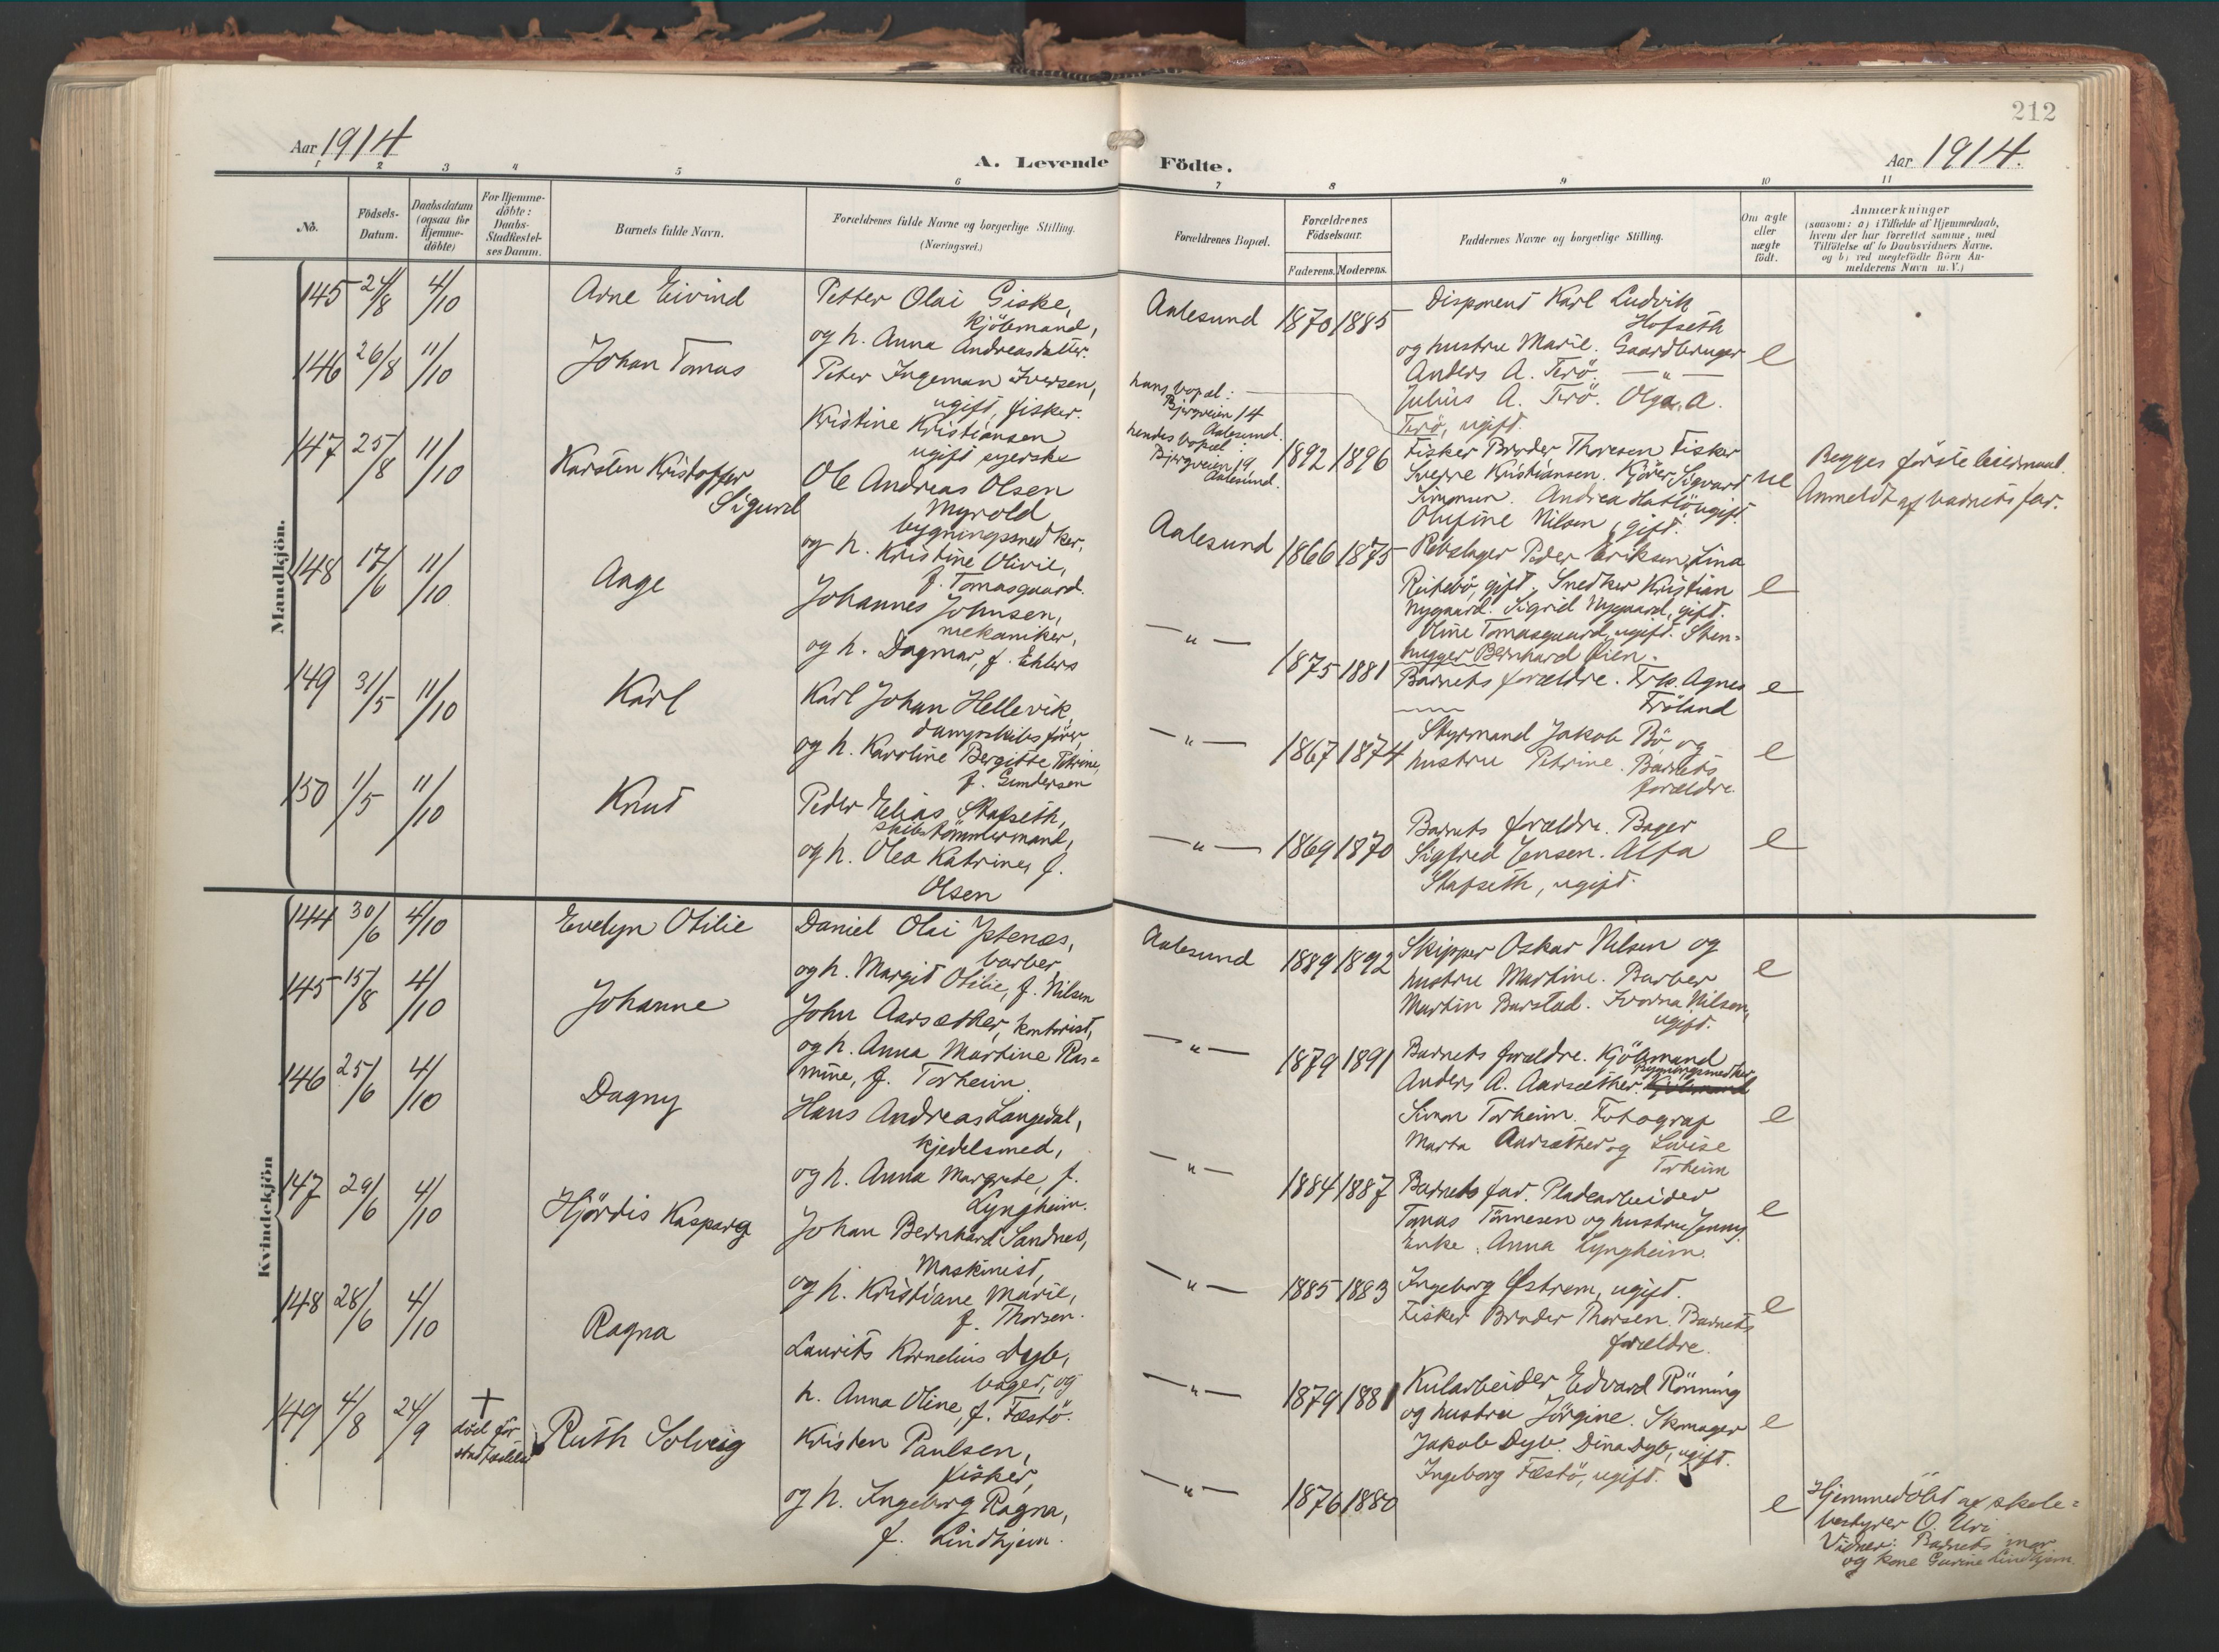 212
Aar 1914
A. Levende Födte.
Aar 1914.
1 2 3 4 5 6 7 8 9 10 11
No.
Födsels-
Datum.
Daabsdatum
(ogsaa for
Hjemme-
döbte)
For Hjemme-
döbte:
Daabs-
Stadfæstel-
ses Datum.
Barnets fulde Navn.
Forældrenes fulde Navne og borgerlige Stilling.
(Næringsvei.)
Forældrenes Bopæl.
Forældrenes
Födselsaar.
Faderens. Moderens.
Faddernes Navne og borgerlige Stilling.
Om ægte
eller
uægte
födt.
Anmærkninger
(saasom: a) i Tilfælde af Hjemmedaab,
hvem der har forrettet samme, med
Tilföielse af to Daabsvidners Navne,
og b) ved uægtefödte Börn An-
melderens Navn m. V.)
Mandkjön.
145 24/8 4/10 Arne Eivind
Petter Olai Giske,
kjöbmand,
og h. Anna Andreasdatter.
Aalesund 1870 1885
Disponent Karl Ludvik
Hofseth
og hustru Marie. Gaardbruger
Anders A. Terö. — " —
Julius A. Terö. Olga A.
Terö, ugift.
e
146 26/8 11/10 Johan Tomas
Peter Ingeman Iversen,
ugift, fisker.
Kristine Kristiansen
ugift syerske
hans bopæl:
Bjergveien 14
Aalesund.
hendes bopæl:
Bjergveien 19,
Aalesund.
1892 1896
Fisker Broder Thoresen Fisker
Sverre Kristiansen. Kjörer Sigvard
Simonsen. Andrea Hatlö ugift.
Olufine Nilsen, gift.
ue
Begges förste leiermaal.
Anmeldt af barnets far.
147 25/8 11/10 Karsten Kristoffer
Sigurd
Ole Andreas Olsen
Myrold
bygningssnedker,
og h. Kristine Olivie,
f. Tomasgaard.
Aalesund 1866 1875
Rebslager Peder Eriksen, Lina
Reitebö, gift. Snedker Kristian
Nygaard. Sigrid Nygaard, gift.
Oline Tomasgaard, ugift. Sten-
hugger Bernhard Öien.
e
148 17/6 11/10 Aage
Johannes Johnsen,
mekaniker,
og h. Dagmar, f. Ehlers
— " — 1875 1881
Barnets forældre. Frk. Agnes
Fröland
e
149 31/5 11/10 Karl
Karl Johan Hellevik,
dampskibsförer,
og h. Karoline Bergitte Petrine,
f. Gundersen
— " — 1867 1874
Styrmand Jakob Bö og
hustru Petrine. Barnets
forældre.
e
150 1/5 11/10 Knut
Peder Elias Stafseth,
skibstömmermand,
og h. Olea Katrine, f.
Olsen
— " — 1869 1870
Barnets forældre. Bager
Sigfred Jensen. Alfa
Stafseth, ugift.
e
Kvindekjön
144 30/6 4/10 Evelyn Otilie
Daniel Olai Ystenæs,
barber,
og h. Margit Otilie, f. Nilsen
Aalesund 1889 1892
Skipper Oskar Nilsen og
hustru Martine. Barber
Martin Barstad. Ivarna Nilsen,
ugift.
e
145 15/8 4/10 Johanne
John Aarsæther, kontorist,
og h. Anna Martine Ras-
mine, f. Torheim.
— " — 1879 1891
Barnets forældre. Kjöbmand
Anders A. Aarsæther. Bygningssnedker
Simon Torheim. Fotograf
Marta Aarsæther og Lovise
Torheim
e
146 25/6 4/10 Dagny
Hans Andreas Langedal,
kjedelsmed,
og h. Anna Margrete, f.
Lyngheim.
— " — 1884 1887
Barnets far. Pladearbeider
Tomas Tönnesen og hustru Jenny.
Enke Anna Lyngheim.
e
147 29/6 4/10 Hjördis Kasparg
Johan Bernhard Sandnes,
Maskinist,
og h. Kristiane Marie,
f. Thorsen.
— " — 1885 1883
Ingeborg Østrem, ugift.
Fisker Broder Thorsen. Barnets
forældre.
e
148 28/6 4/10 Ragna
Laurits Kornelius Dyb,
bager, og
h. Anna Oline, f. Fæstö.
— " — 1879 1881
Kularbeider Edvard Rönning
og hustru Jörgine. Skomager
Jakob Dyb. Dina Dyb, ugift.
Ingeborg Fæstö, ugift.
e
149 4/8 24/9
död för
Ruth Solveig
Kristen Paulsen,
fisker,
og h. Ingeborg Ragna,
f. Lindhjem.
— " — 1876 1880
e
Hjemmedöbt af skole-
bestyrer O. Uri
Vidner: Barnets mor
og kone Gurine Lindhjem.